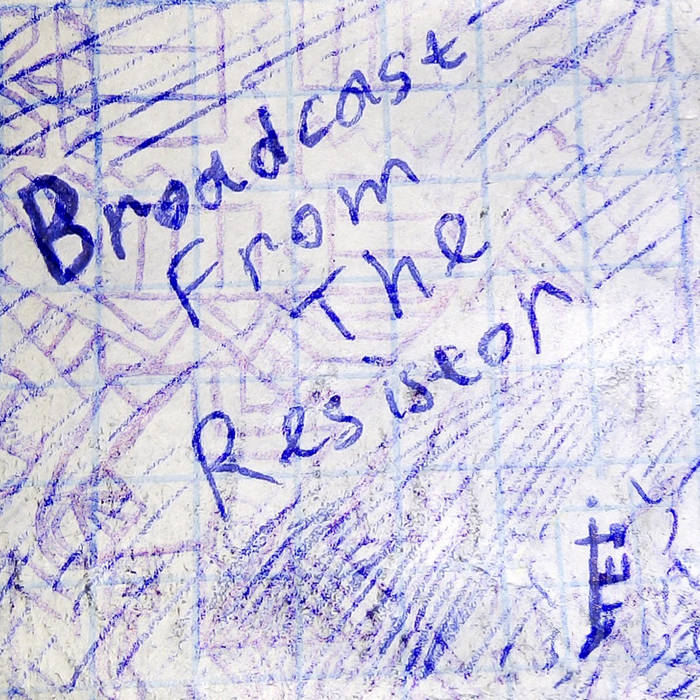 Broadcast
From
The
Resistor